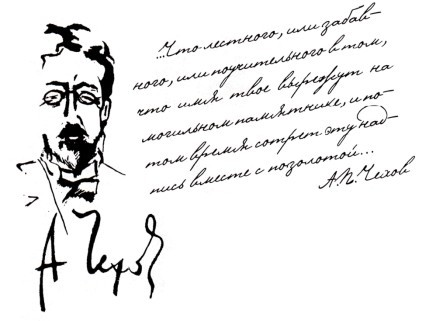 ...Что лестного, или забав-
ного, или поучительного в том,
что имя твое вырежут на
могильном памятнике, и по-
том время сотрет эту над-
пись вместе с позолотой...
А.П. Чехов
А Чехов